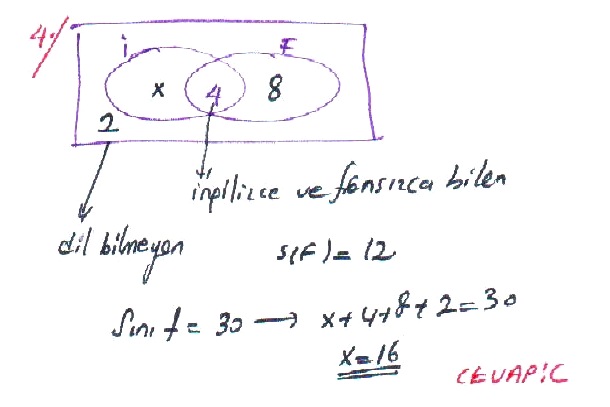 4-/
İ F
x 4 8
2
ingilizce ve fransızca bilen
dil bilmeyen s(F) = 12
Sınıf = 30 → x + 4 + 8 + 2 = 30
x = 16
CEVAP: C